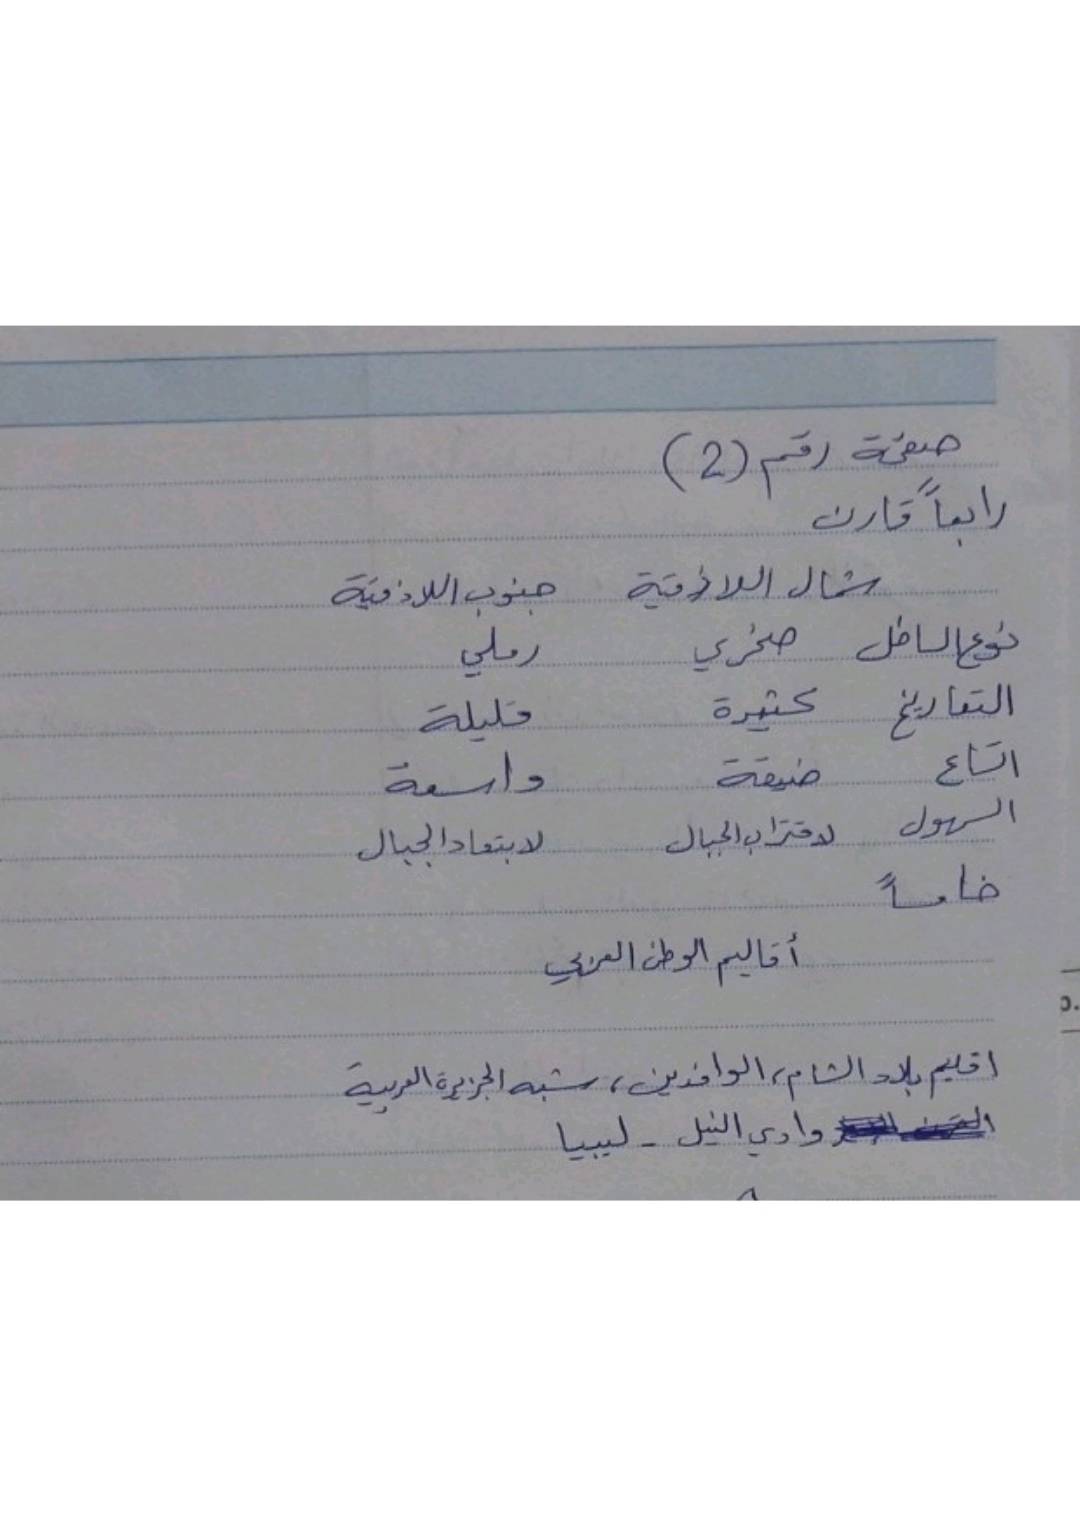 صفحة رقم (2)
رابعاً قارن
شمال اللاذقية جنوب اللاذقية
نوع الساحل صخري رملي
التعاريج كثيرة قليلة
اتساع ضيقة واسعة
السهول لاقتراب الجبال لابتعاد الجبال
خامساً
أقاليم الوطن العربي
اقليم بلاد الشام، الرافدين، شبه الجزيرة العربية
وادي النيل - ليبيا